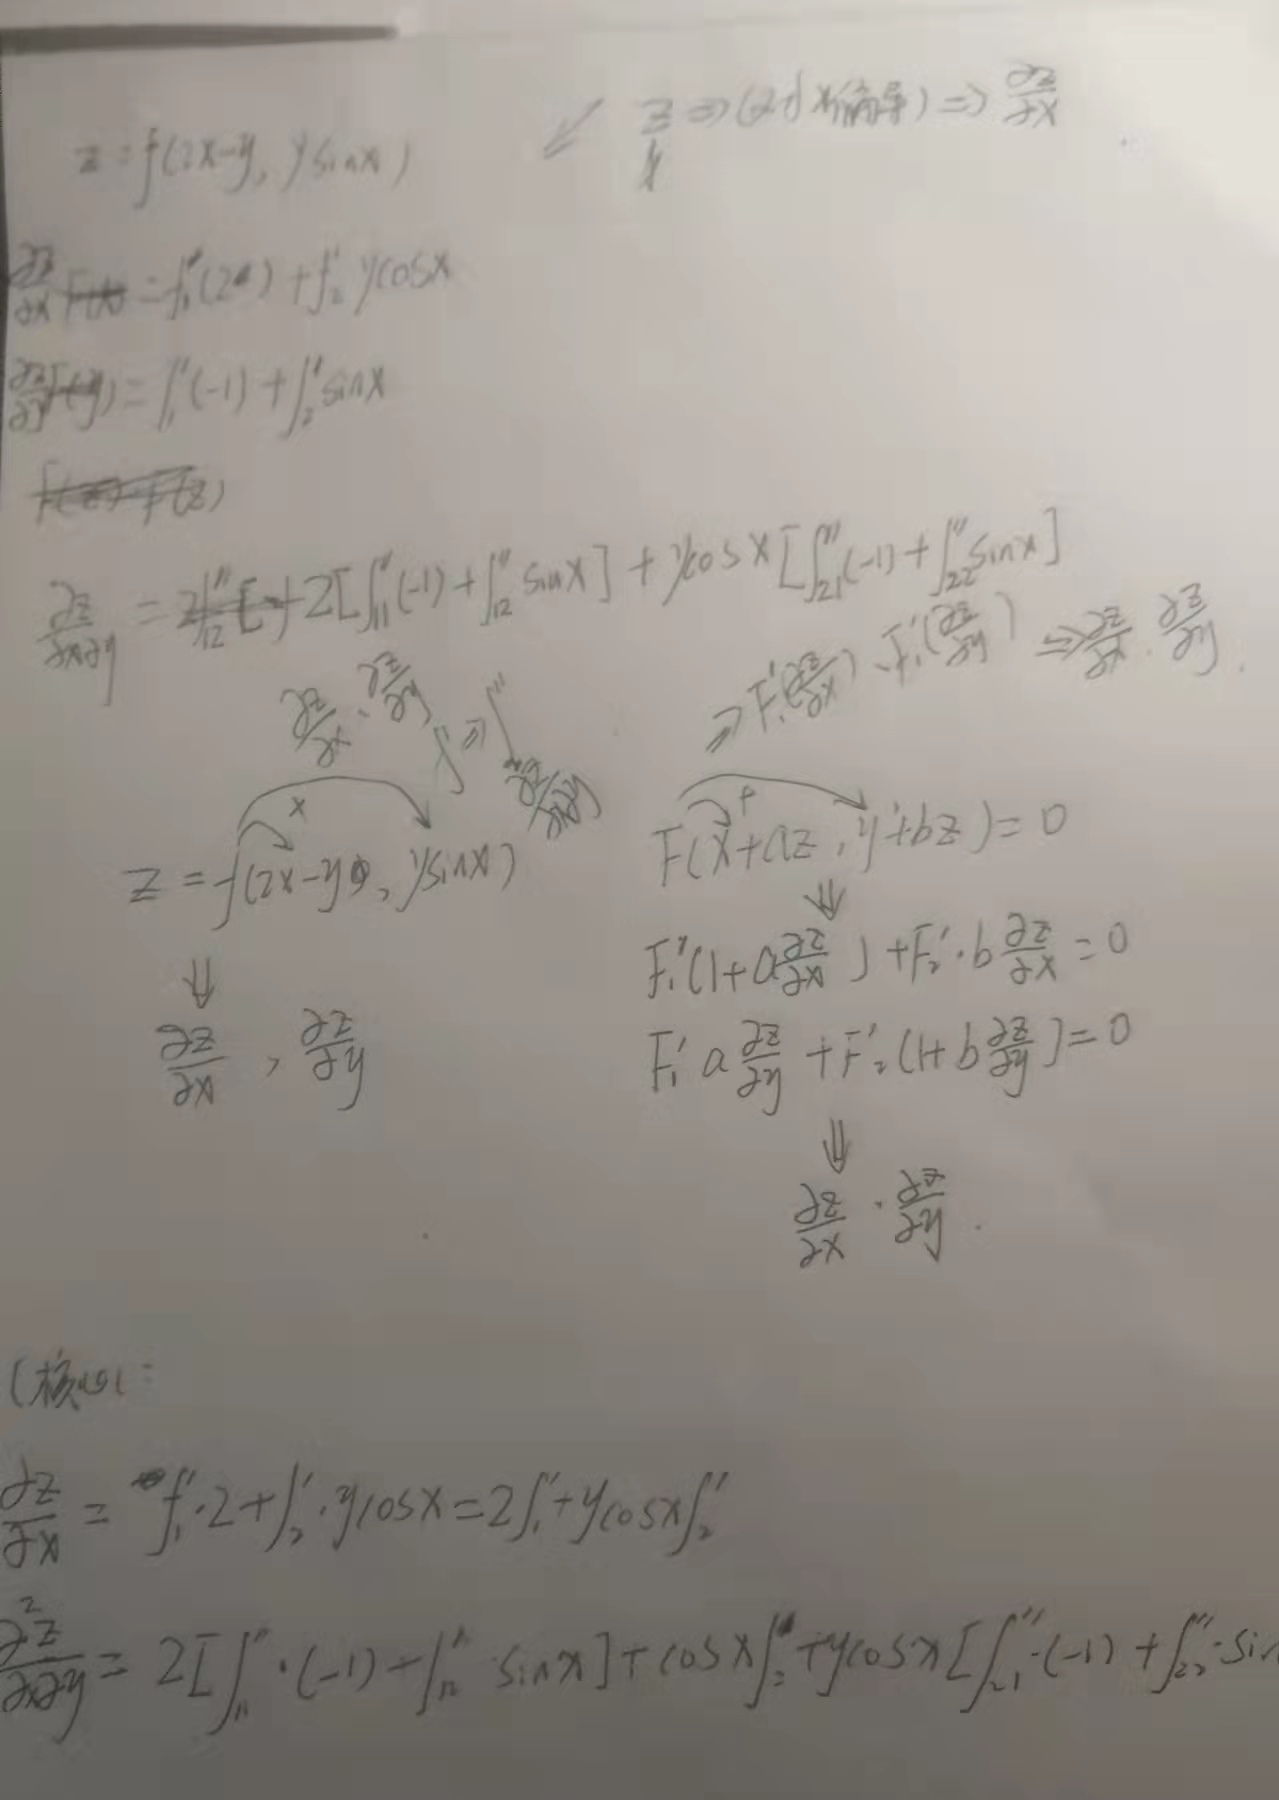 z ⇒ (z对x偏导) ⇒ ∂z/∂x
z = f(2x-y, ysinx)
∂z/∂x = f₁'(2) + f₂' ycosx
∂z/∂y = f₁'(-1) + f₂' sinx
∂z/∂x∂y = 2[f₁₁''(-1) + f₁₂'' sinx] + ycosx[f₂₁''(-1) + f₂₂'' sinx]
∂z/∂x · ∂z/∂y
⇒ F₁'(∂z/∂x) · F₁'(∂z/∂y) ⇒ ∂z/∂x · ∂z/∂y.
x
z = f(2x-y, ysinx)
⇓
∂z/∂x , ∂z/∂y
F(x+az, y+bz) = 0
⇓
F₁'(1+a ∂z/∂x) + F₂'·b ∂z/∂x = 0
F₁' a ∂z/∂y + F₂'(1+b ∂z/∂y) = 0
⇓
∂z/∂x · ∂z/∂y.
(核心:
∂z/∂x = f₁'·2 + f₂'·ycosx = 2f₁' + ycosx f₂'
∂²z/∂x∂y = 2[f₁₁''·(-1) + f₁₂'' sinx] + cosx f₂' + ycosx[f₂₁''·(-1) + f₂₂''·sin